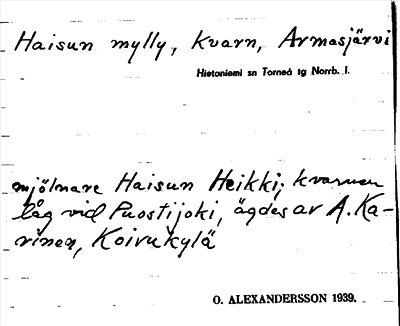 Haisun mylly, kvarn, Armasjärvi
Hietaniemi sn Torneå tg Norrb. l.
mjölnare Haisun Heikki; kvarnen
låg vid Puostijoki, ägdes av A. Ka-
rinen, Koivukylä
O. ALEXANDERSSON 1939.